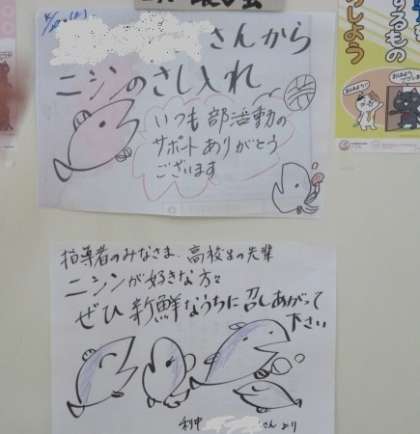 さんから
ニシンのさし入れ
いつも部活動の
サポートありがとう
ございます
指導者のみなさま、高校生の先輩
ニシンが好きな方々
ぜひ新鮮なうちに召しあがって
下さい
さんより
するもの
しよう